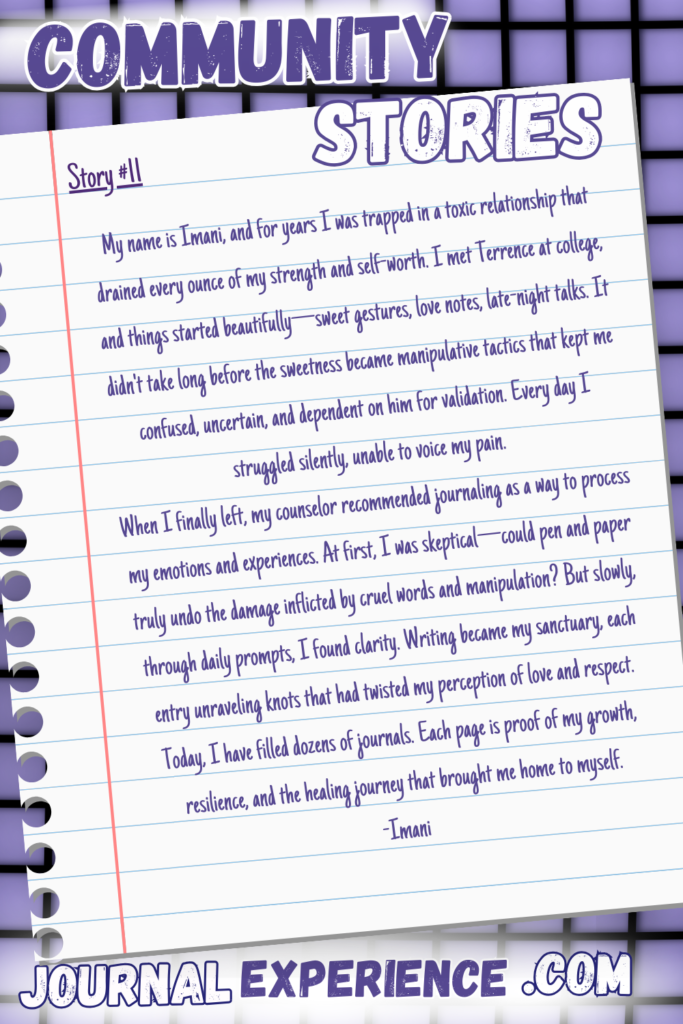 COMMUNITY
STORIES
Story #11
My name is Imani, and for years I was trapped in a toxic relationship that
drained every ounce of my strength and self-worth. I met Terrence at college,
and things started beautifully—sweet gestures, love notes, late-night talks. It
didn't take long before the sweetness became manipulative tactics that kept me
confused, uncertain, and dependent on him for validation. Every day I
struggled silently, unable to voice my pain.
When I finally left, my counselor recommended journaling as a way to process
my emotions and experiences. At first, I was skeptical—could pen and paper
truly undo the damage inflicted by cruel words and manipulation? But slowly,
through daily prompts, I found clarity. Writing became my sanctuary, each
entry unraveling knots that had twisted my perception of love and respect.
Today, I have filled dozens of journals. Each page is proof of my growth,
resilience, and the healing journey that brought me home to myself.
-Imani
JOURNAL EXPERIENCE .COM